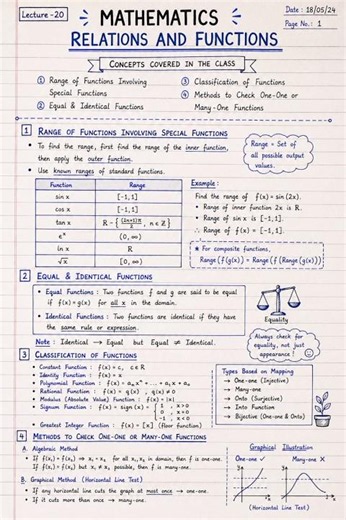 Lecture-20
MATHEMATICS
RELATIONS AND FUNCTIONS
Date : 18/05/24
Page No.: 1
CONCEPTS COVERED IN THE CLASS
① Range of Functions Involving Special Functions
② Equal & Identical Functions
③ Classification of Functions
④ Methods to Check One-One or Many-One Functions
1 RANGE OF FUNCTIONS INVOLVING SPECIAL FUNCTIONS
• To find the range, first find the range of the inner function,
then apply the outer function.
• Use known ranges of standard functions.
Range = Set of
all possible output
values.
Function Range
sin x [-1,1]
cos x [-1,1]
tan x
eˣ (0,∞)
ln x R
√x [0,∞)
Example:
Find the range of f(x) = sin(2x).
• Range of inner function 2x is R.
• Range of sin x is [-1,1].
∴ Range of f(x) = [-1,1].
* For composite functions,
Range(f(g(x)) = Range(f(Range(g(x)))
2 EQUAL & IDENTICAL FUNCTIONS
• Equal Functions: Two functions f and g are said to be equal
if f(x) = g(x) for all x in the domain.
• Identical Functions: Two functions are identical if they have
the same rule or expression.
Note: Identical → Equal but Equal ≠ Identical.
Equality
Always check for
equality, not just
appearance!
3 CLASSIFICATION OF FUNCTIONS
• Constant Function: f(x) = c, c∈R
• Identity Function: f(x) = x
• Polynomial Function:
• Rational Function:
• Modulus (Absolute Value) Function: f(x) = |x|
• Signum Function:
1, x>0
0, x=0
-1, x<0
• Greatest Integer Function: f(x) = [x] (floor function)
Types Based on Mapping
→ One-one (Injective)
→ Many-one
→ Onto (Surjective)
→ Into Function
→ Bijective (One-one & Onto)
4 METHODS TO CHECK ONE-ONE OR MANY-ONE FUNCTIONS
A. Algebraic Method
• If f(x₁) = f(x₂) ⇒ x₁ = x₂ for all x₁, x₂ in domain, then f is one-one.
• If f(x₁) = f(x₂) but x₁ ≠ x₂ possible, then f is many-one.
B. Graphical Method (Horizontal Line Test)
• If any horizontal line cuts the graph at most once → one-one.
• If it cuts more than once → many-one.
Graphical Illustration
One-one ✓ Many-one ✗
(Horizontal Line Test)